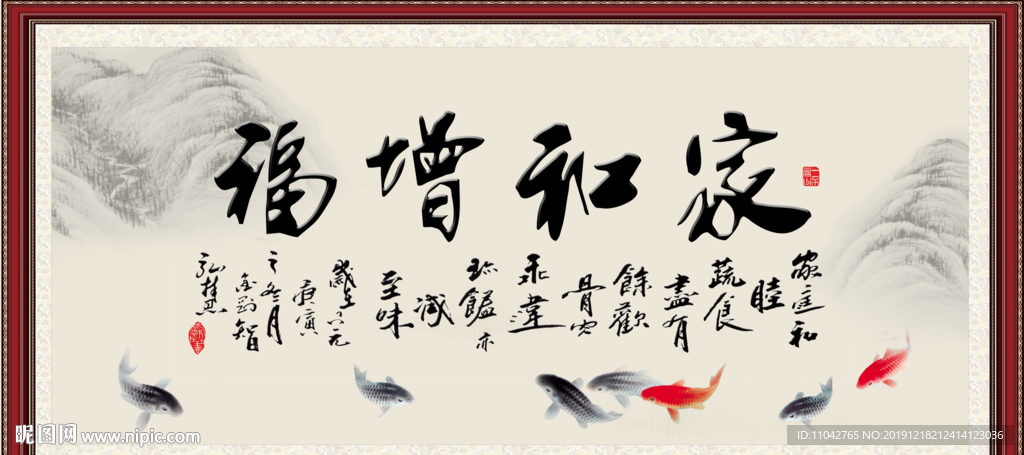 家和增福
家庭和
睦
蔬食
盡有
餘歡
骨肉
乖違
珍饈亦
減
至味
歲在公元
庚寅
之冬月
金劉智
昵图网 www.nipic.com
ID:11042765 NO:20191218212414123036